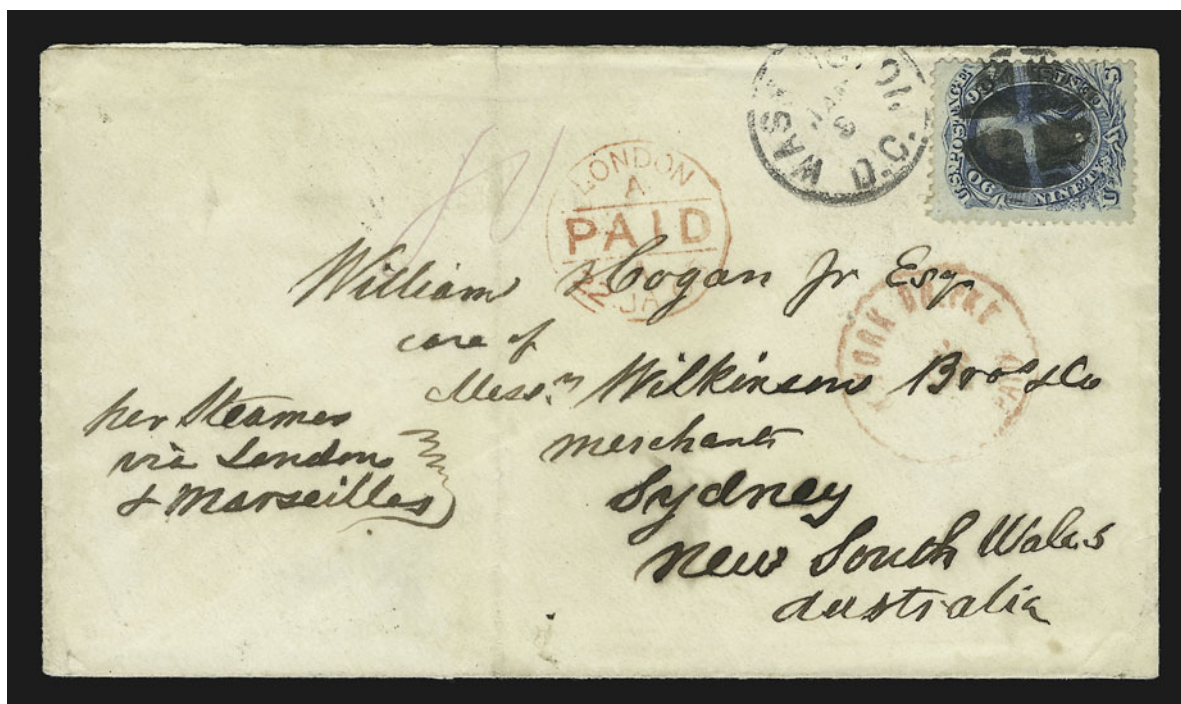 WASH D.C.
JAN
6
U.S. POSTAGE
90
NINETY
U S
LONDON
A
PAID
JA
YORK BR. PKT
PAID
William Hogan Jr Esq.
care of
Messrs Wilkinson Bros & Co
merchants
Sydney
New South Wales
Australia
per Steamer
via London
& Marseilles